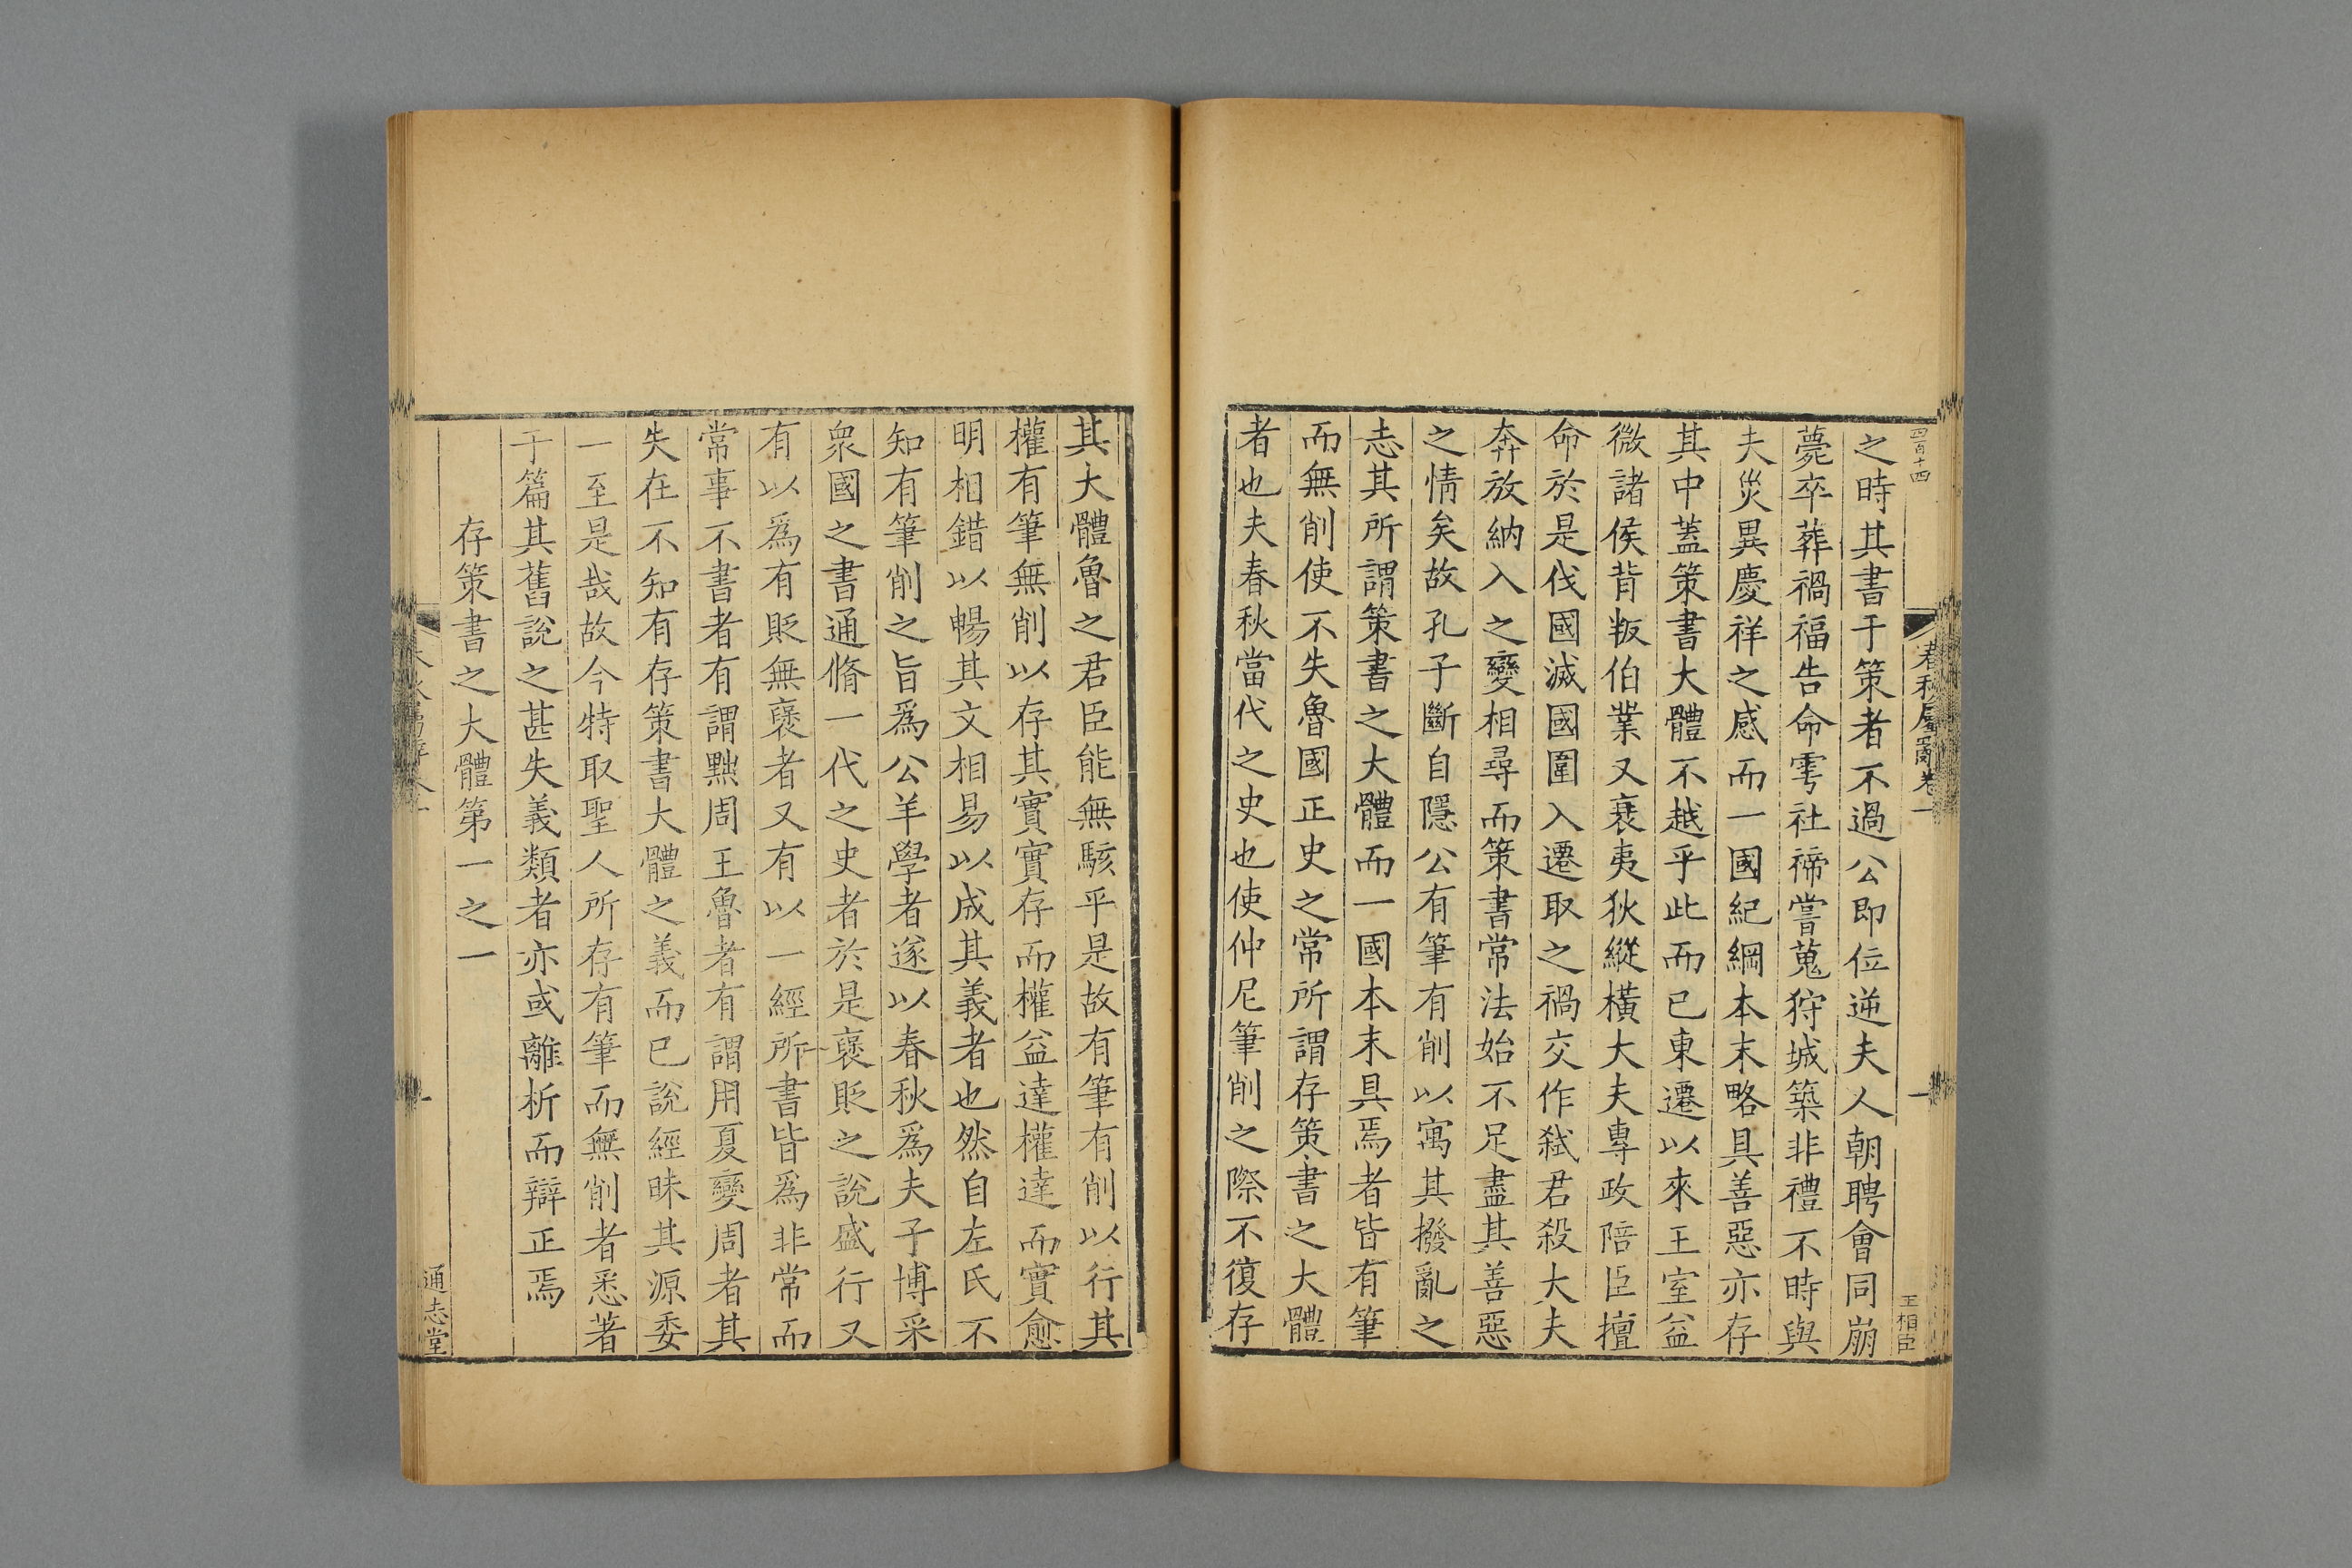 四百十四
春秋屬辭卷一
一
王相臣
之時其書于策者不過公即位逆夫人朝聘會同崩
薨卒葬禍福告命雩社禘嘗蒐狩城築非禮不時與
夫災異慶祥之感而一國紀綱本末略具善惡亦存
其中蓋策書大體不越乎此而已東遷以來王室益
微諸侯背叛伯業又衰夷狄縱橫大夫專政陪臣擅
命於是伐國滅國圍入遷取之禍交作弑君殺大夫
奔放納入之變相尋而策書常法始不足盡其善惡
之情矣故孔子斷自隱公有筆有削以寓其撥亂之
志其所謂策書之大體而一國本末具焉者皆有筆
而無削使不失魯國正史之常所謂存策書之大體
者也夫春秋當代之史也使仲尼筆削之際不復存
其大體魯之君臣能無駭乎是故有筆有削以行其
權有筆無削以存其實實存而權益達權達而實愈
明相錯以暢其文相易以成其義者也然自左氏不
知有筆削之旨爲公羊學者遂以春秋爲夫子博采
衆國之書通脩一代之史者於是褒貶之說盛行又
有以爲有貶無襃者又有以一經所書皆爲非常而
常事不書者有謂黜周王魯者有謂用夏變周者其
失在不知有存策書大體之義而已說經昧其源委
一至是哉故今特取聖人所存有筆而無削者悉著
于篇其舊說之甚失義類者亦或離析而辯正焉
存策書之大體第一之一
通志堂